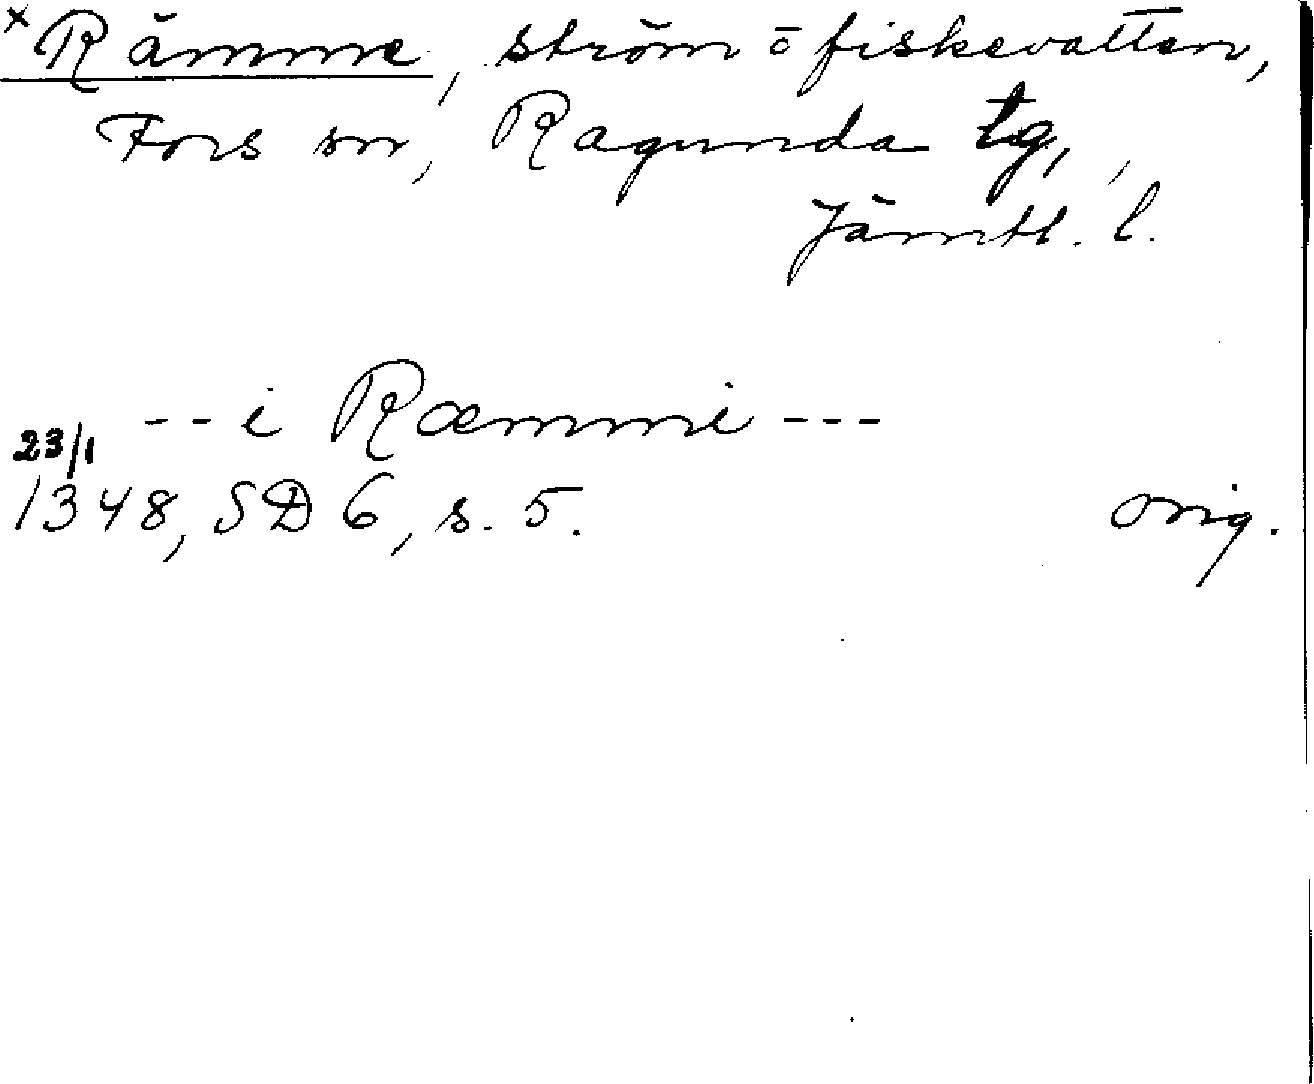 ×Rämne, ström ō fiskevatten,
Fors sn, Ragunda tg,,
Jämtl. l.
-- i Ræmmi ---
23/1
1348, SD 6, s. 5. orig.